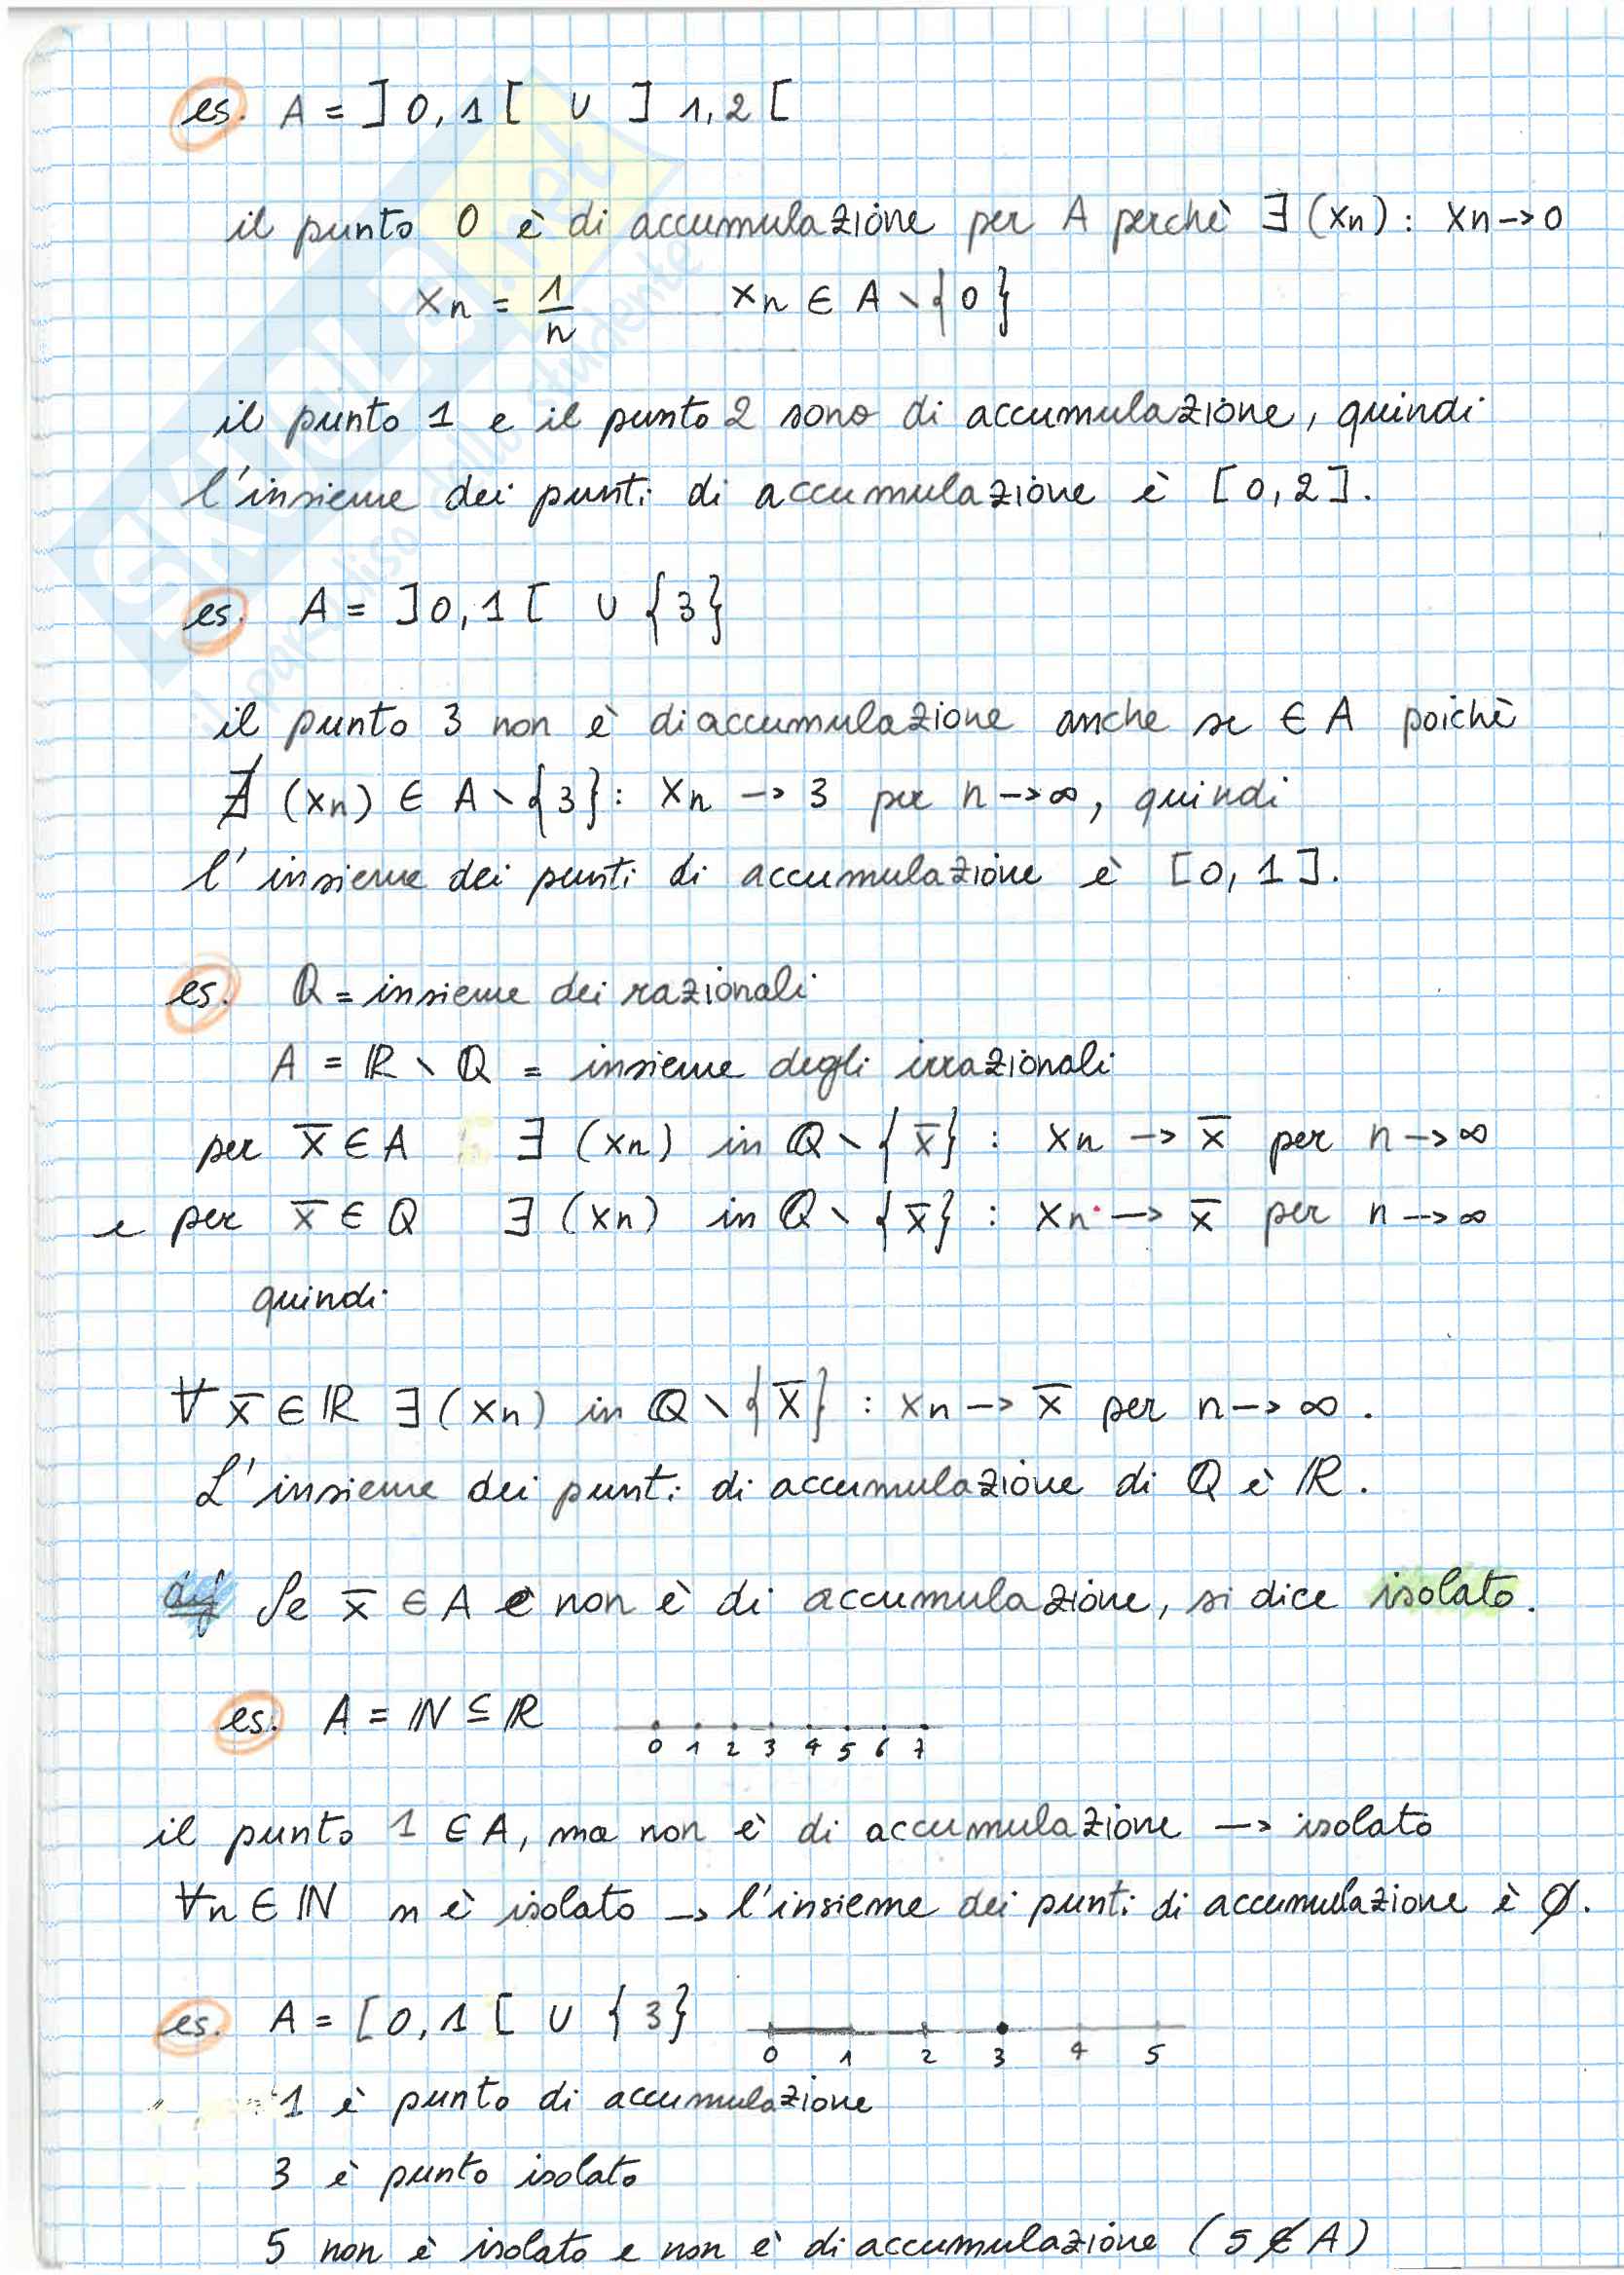 es. A = ]0,1[ ∪ ]1,2[
il punto 0 è di accumulazione per A perchè ∃(xn): xn→0
xn = 1/n xn ∈ A \ {0}
il punto 1 e il punto 2 sono di accumulazione, quindi
l'insieme dei punti di accumulazione è [0,2].
es. A = ]0,1[ ∪ {3}
il punto 3 non è di accumulazione anche se ∈ A poichè
∄ (xn) ∈ A \ {3}: xn → 3 per n→∞, quindi
l'insieme dei punti di accumulazione è [0,1].
es. Q = insieme dei razionali
A = ℝ \ Q = insieme degli irrazionali
per x̅ ∈ A ∃ (xn) in Q \ {x̅} : xn → x̅ per n→∞
e per x̅ ∈ Q ∃ (xn) in Q \ {x̅} : xn → x̅ per n→∞
quindi
∀ x̅ ∈ ℝ ∃ (xn) in Q \ {x̅} : xn → x̅ per n→∞.
L'insieme dei punti di accumulazione di Q è ℝ.
def Se x̅ ∈ A e non è di accumulazione, si dice isolato.
es. A = ℕ ⊆ ℝ
0 1 2 3 4 5 6 7
il punto 1 ∈ A, ma non è di accumulazione → isolato
∀n ∈ ℕ n è isolato → l'insieme dei punti di accumulazione è ∅.
es. A = [0,1[ ∪ {3}
0 1 2 3 4 5
1 è punto di accumulazione
3 è punto isolato
5 non è isolato e non è di accumulazione (5 ∉ A)
SKUOLA.net
il paradiso dello studente